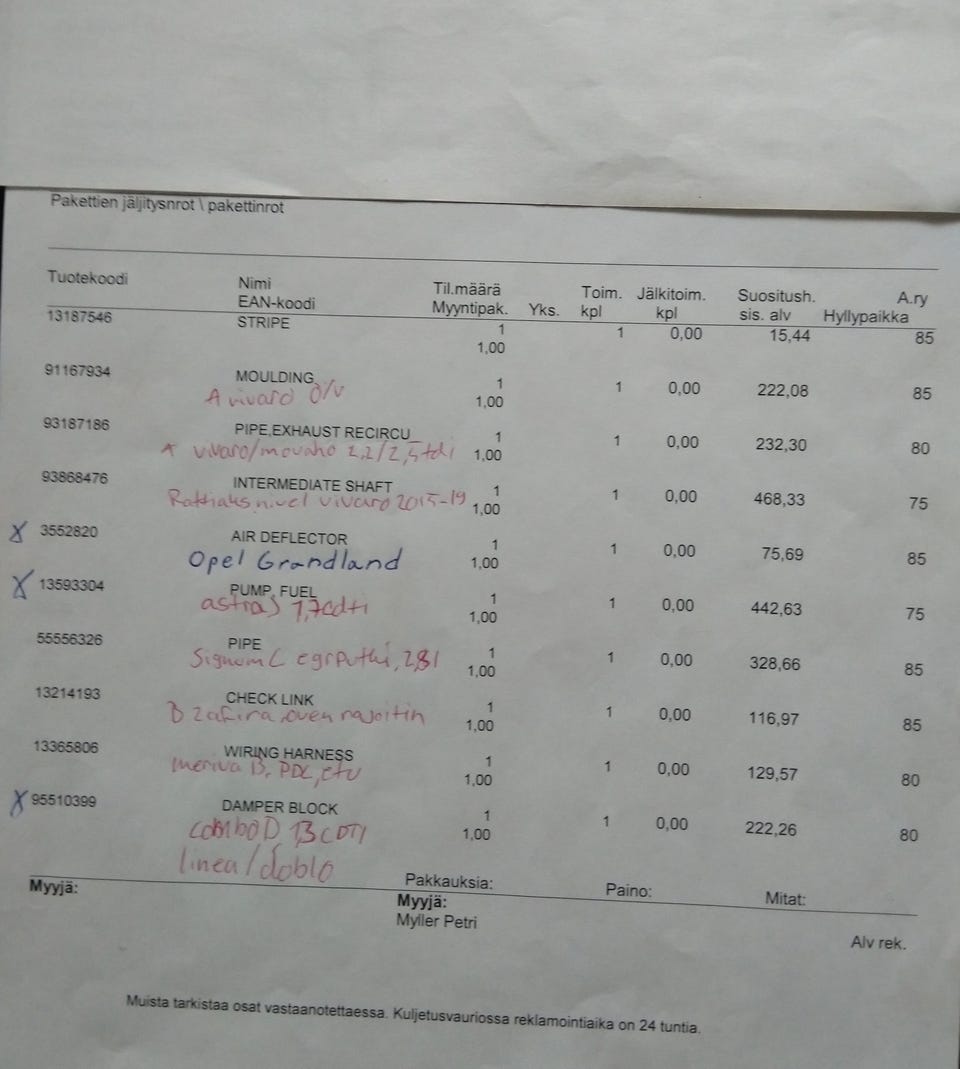 Pakettien jäljitysnrot \ pakettinrot
Tuotekoodi Nimi Til.määrä Toim. Jälkitoim. Suositush. A.ry
EAN-koodi Myyntipak. Yks. kpl kpl sis. alv Hyllypaikka
13187546 STRIPE 1 1 0,00 15,44 85
1,00
91167934 MOULDING 1 1 0,00 222,08 85
A vivaro O/V 1,00
93187186 PIPE,EXHAUST RECIRCU_ 1 1 0,00 232,30 80
A vivaro/movano 2,2/2,5tdi 1,00
93868476 INTERMEDIATE SHAFT 1 1 0,00 468,33 75
Rattiaks.nivel vivaro 2015-19 1,00
X 3552820 AIR DEFLECTOR 1 1 0,00 75,69 85
Opel Grandland 1,00
X 13593304 PUMP, FUEL 1 1 0,00 442,63 75
astra J 1,7cdti 1,00
55556326 PIPE 1 1 0,00 328,66 85
Signum C egrputki, 1,00
13214193 CHECK LINK 1 1 0,00 116,97 85
B zafira,oven rajoitin 1,00
13365806 WIRING HARNESS 1 1 0,00 129,57 80
meriva B, PDC,etu 1,00
X 95510399 DAMPER BLOCK 1 1 0,00 222,26 80
combo D 1,3 CDTI 1,00
linea/doblo
Pakkauksia: Paino: Mitat:
Myyjä: Myyjä:
Myller Petri
Alv rek.
Muista tarkistaa osat vastaanotettaessa. Kuljetusvauriossa reklamointiaika on 24 tuntia.